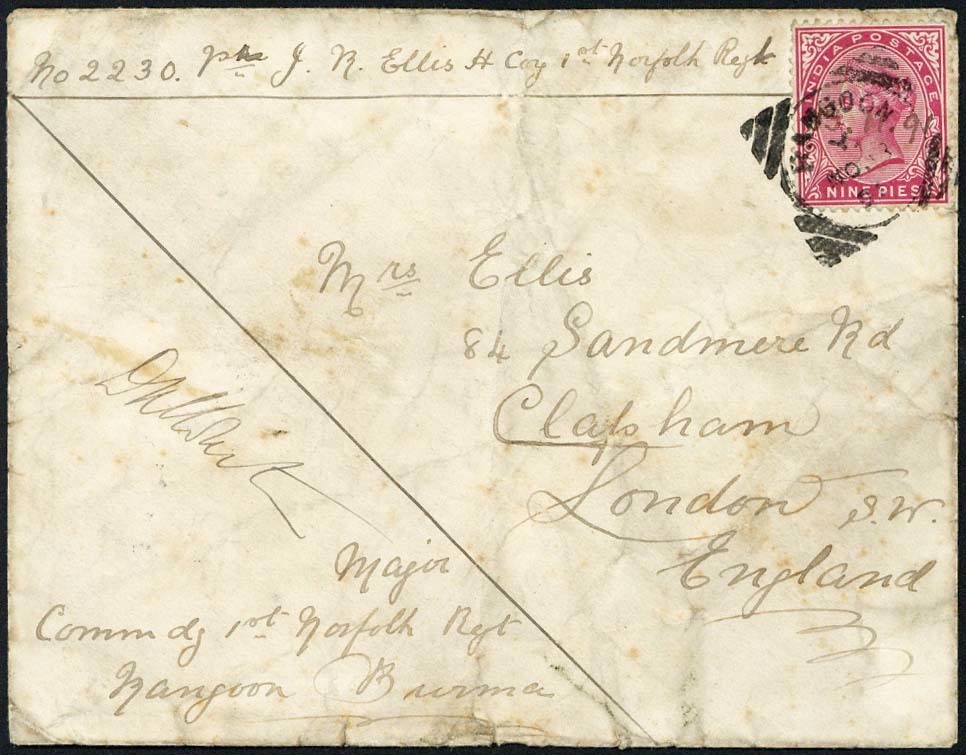 No 2230. Pte J. R. Ellis H Coy 1st Norfolk Regt
INDIA POSTAGE
RANGOON
NINE PIES
Mrs Ellis
84 Sandmere Rd
Clapham
London S.W.
England
Major
Commdg 1st Norfolk Regt
Rangoon Burma